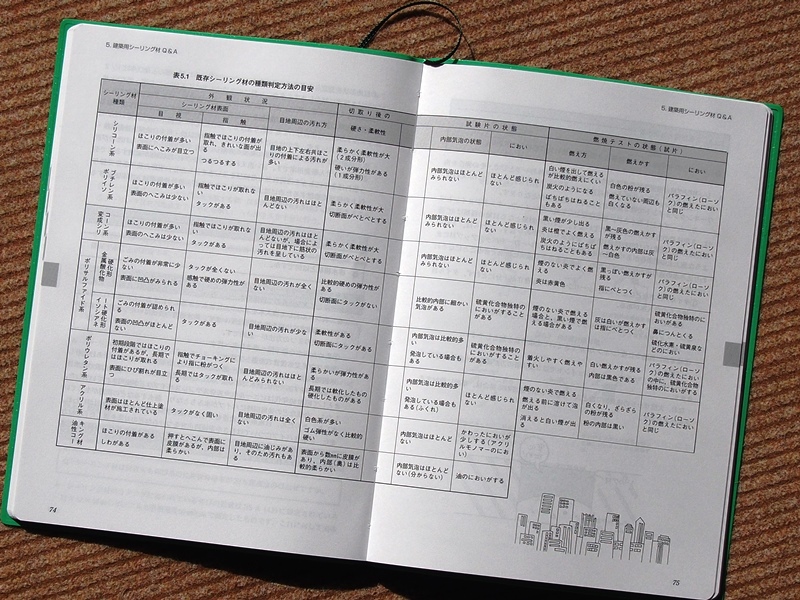 5. 建築用シーリング材 Q & A
表5.1 既存シーリング材の種類判定方法の目安
シーリング材
種類
外観状況
シーリング材表面
目視
指触
目地周辺の汚れ方
切取り後の
硬さ・柔軟性
シリコーン系
ほこりの付着が多い
表面にへこみが目立つ
指触でほこりの付着が
取れ、きれいな面が出
る
つるつるする
目地の上下左右共ほこ
りの付着による汚れが
多い
柔らかく柔軟性が大
(2成分形)
硬いが弾性がある
(1成分形)
ポリイソ
ブチレン系
ほこりの付着が多い
表面のへこみは少ない
指触でほこりが取れな
い
タックがある
目地周辺の汚れはほと
んどない
柔らかく柔軟性が大
切断面がべとべとする
変成シリ
コーン系
ほこりの付着が多い
表面のへこみは少ない
指触でほこりが取れな
い
タックがある
目地周辺の汚れはほと
んどないが、場合によ
っては目地下に筋状の
汚れを呈している
柔らかく柔軟性が大
切断面がべとべとする
ポリサルファイド系
金属酸化物
硬化形
ごみの付着が非常に少
ない
表面に凹凸がみられる
タックが全くない
感触で硬めの弾力性が
ある
目地周辺の汚れが全く
ない
比較的硬めの弾力性が
ある
切断面にタックがない
イソシアネ
ート硬化形
ごみの付着が認められ
る
表面の凹凸がほとんど
ない
タックがある
目地周辺の汚れが少な
い
柔軟性がある
切断面にタックがある
ポリウレタン系
初期段階ではほこりの
付着があるが、長期で
はほこりが取れる
表面にひび割れが目立
つ
指触でチョーキングに
より指に粉がつく
長期ではタックが取れ
る
目地周辺の汚れはほと
んどみられない
柔らかいが弾力性があ
る
長期では軟化したもの
硬化したものがある
アクリル系
表面はほとんど仕上塗
材が施工されている
タックがなく固い
目地周辺の汚れは全く
ない
白色系が多い
ゴム弾性がなく比較的
硬い
油性コー
キング材
ほこりの付着がある
しわがある
押すとへこんで表面に
皮膜があるが、内部は
柔らかい
目地周辺に油じみがあ
り、そのため汚れもあ
る
表面から数㎜に皮膜が
あり、内部(奥)は比
較的柔らかい
74
5. 建築用シーリング材 Q & A
試験片の状態
内部気泡の状態
におい
燃焼テストの状態(試片)
燃え方
燃えかす
におい
内部気泡はほとんど
みられない
ほとんど感じられな
い
白い煙を出して燃える
が比較的燃えにくい
炭火のようになる
ぱちぱちはねること
もある
白色の粉が残る
燃えていない周辺も
白くなる
パラフィン(ローソ
ク)の燃えたにおい
と同じ
内部気泡はほとんど
みられない
ほとんど感じられな
い
黒い煙が少し出る
炎は橙でよく燃える
炭火のようにぱちぱ
ちはねることもある
黒〜灰色の燃えかす
が残る
燃えかすの内部は灰
〜白色
パラフィン(ローソ
ク)の燃えたにおい
と同じ
内部気泡はほとんど
みられない
ほとんど感じられな
い
煙のない炎でよく燃
える
炎は赤黄色
黒っぽい燃えかすが
残る
指にべとつく
パラフィン(ローソ
ク)の燃えたにおい
と同じ
比較的内部に細かい
気泡がある
硫黄化合物独特の
においがすることが
ある
煙のない炎で燃える
場合と、黒い煙で燃
える場合がある
灰は白いが燃えかす
は指にべとつく
硫黄化合物独特のに
おいがある
鼻につんとくる
硫化水素・硫黄など
のにおい
内部気泡は比較的多
い
発泡している場合も
ある
硫黄化合物独特の
においがすることが
ある
着火しやすく燃えや
すい
白い燃えかすが残る
内部は黒色である
パラフィン(ローソ
ク)の燃えたにおい
の中に、硫黄化合物
独特のにおいがする
内部気泡は比較的多
い
発泡している場合も
ある(ふくれ)
ほとんど感じられな
い
煙のない炎で燃える
燃える前に溶けて泡
が出る
消えると白い煙が出
る
白くなり、ざらざら
の粉が残る
粉の内部は黒い
パラフィン(ローソ
ク)の燃えたにおい
と同じ
内部気泡はほとんど
ない
かわったにおいが
少しする(アクリ
ルモノマーのにお
い)
内部気泡はほとんど
ない(分からない)
油のにおいがする
75